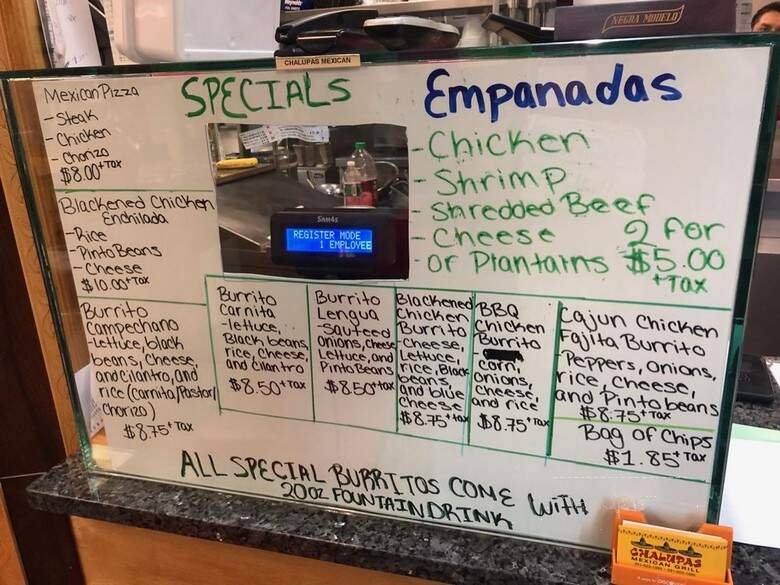 NEGRA MODELO
CHALUPAS MEXICAN
SPECIALS
Mexican Pizza
- Steak
- Chicken
- Chorizo
$8.00 + Tax
Blackened Chicken
Enchilada
- Rice
- Pinto Beans
- Cheese
$10.00 + Tax
Burrito
Campechano
- Lettuce, black
beans, cheese,
and cilantro, and
rice (carnita/Pastor/
chorizo)
$8.75 + Tax
Sam4s
REGISTER MODE
1 EMPLOYEE
Empanadas
- Chicken
- Shrimp
- Shredded Beef
- Cheese
- or Plantains
2 for
$5.00
+ Tax
Burrito
Carnita
- lettuce,
Black beans,
rice, cheese,
and cilantro
$8.50 + Tax
Burrito
Lengua
- Sauteed
onions, cheese
Lettuce, and
Pinto Beans
$8.50 + Tax
Blackened
Chicken
Burrito
- Cheese,
Lettuce,
rice, Black
beans,
and blue
cheese
$8.75 + Tax
BBQ
Chicken
Burrito
corn,
onions,
cheese,
and rice
$8.75 + Tax
Cajun Chicken
Fajita Burrito
- Peppers, onions,
rice, cheese,
and Pinto beans
$8.75 + Tax
Bag of Chips
$1.85 + Tax
ALL SPECIAL BURRITOS COME WITH
20oz FOUNTAIN DRINK
CHALUPAS
MEXICAN GRILL